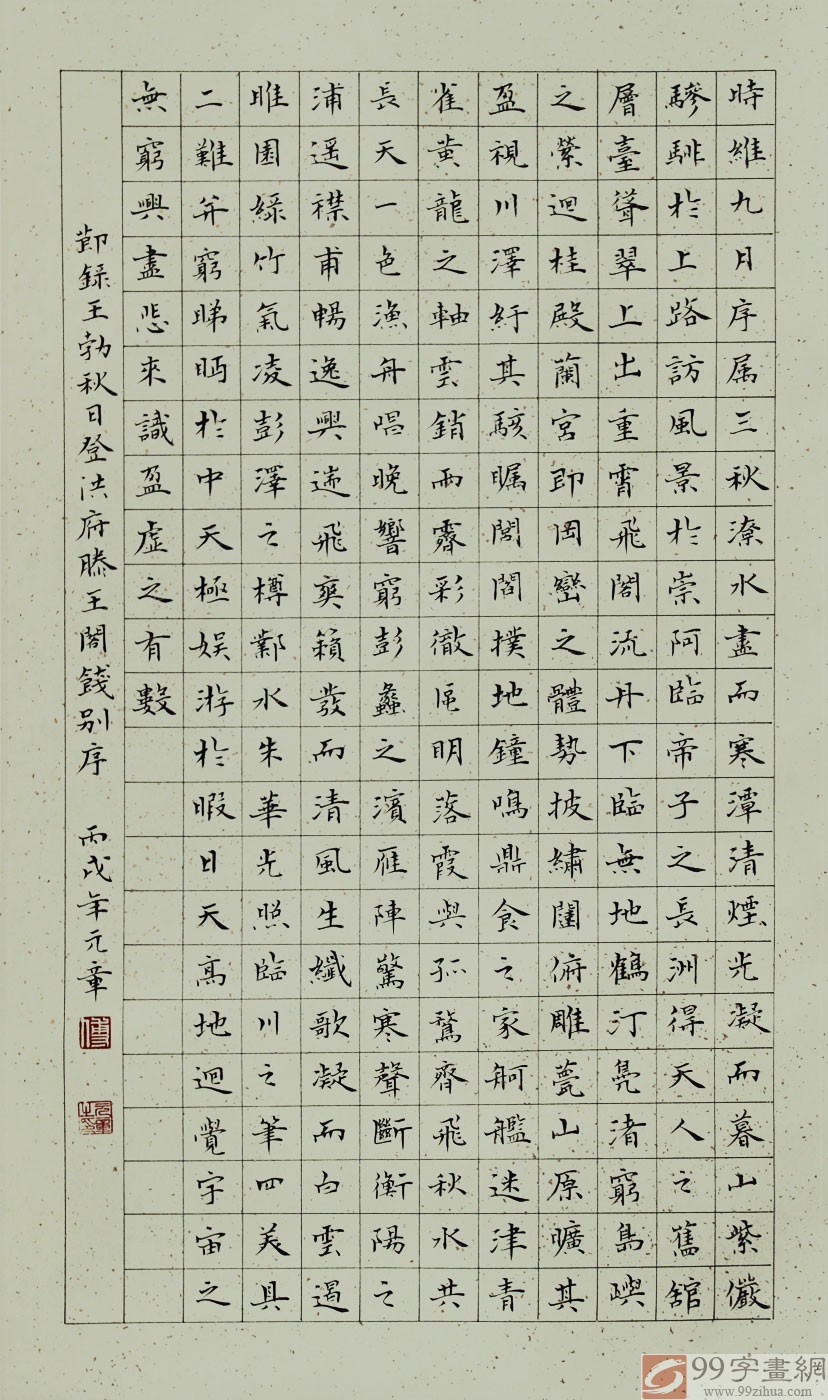 時維九月序属三秋潦水盡而寒潭清煙光凝而暮山紫儼
驂騑於上路訪風景於崇阿臨帝子之長洲得天人之舊舘
層臺聳翠上出重霄飛閣流丹下臨無地鶴汀鳧渚窮島嶼
之縈迴桂殿蘭宮即岡巒之體勢披繡闥俯雕甍山原曠其
盈視川澤紆其駭瞩閭閻撲地鐘鳴鼎食之家舸艦迷津青
雀黄龍之軸雲銷雨霽彩徹區明落霞與孤鶩齊飛秋水共
長天一色漁舟唱晚響窮彭蠡之濱雁陣驚寒聲斷衡陽之
浦遥襟甫暢逸興遄飛爽籟發而清風生纖歌凝而白雲遏
睢園緑竹氣凌彭澤之樽鄴水朱華光照臨川之筆四美具
二難并窮睇眄於中天極娱游於暇日天高地迥覺宇宙之
無窮興盡悲來識盈虚之有數
節録王勃秋日登洪府滕王閣餞别序 丙戌年元章
99字畫網
www.99zihua.com